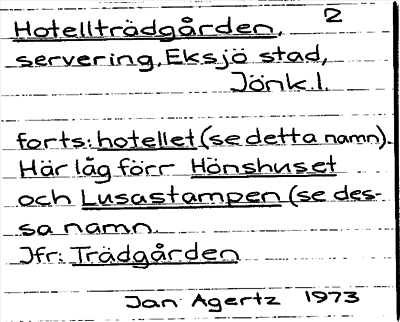 2
Hotellträdgården,
servering, Eksjö stad,
Jönk.l.
forts: hotellet (se detta namn).
Här låg förr Hönshuset
och Lusastampen (se des-
sa namn.
Jfr: Trädgården
Jan Agertz 1973